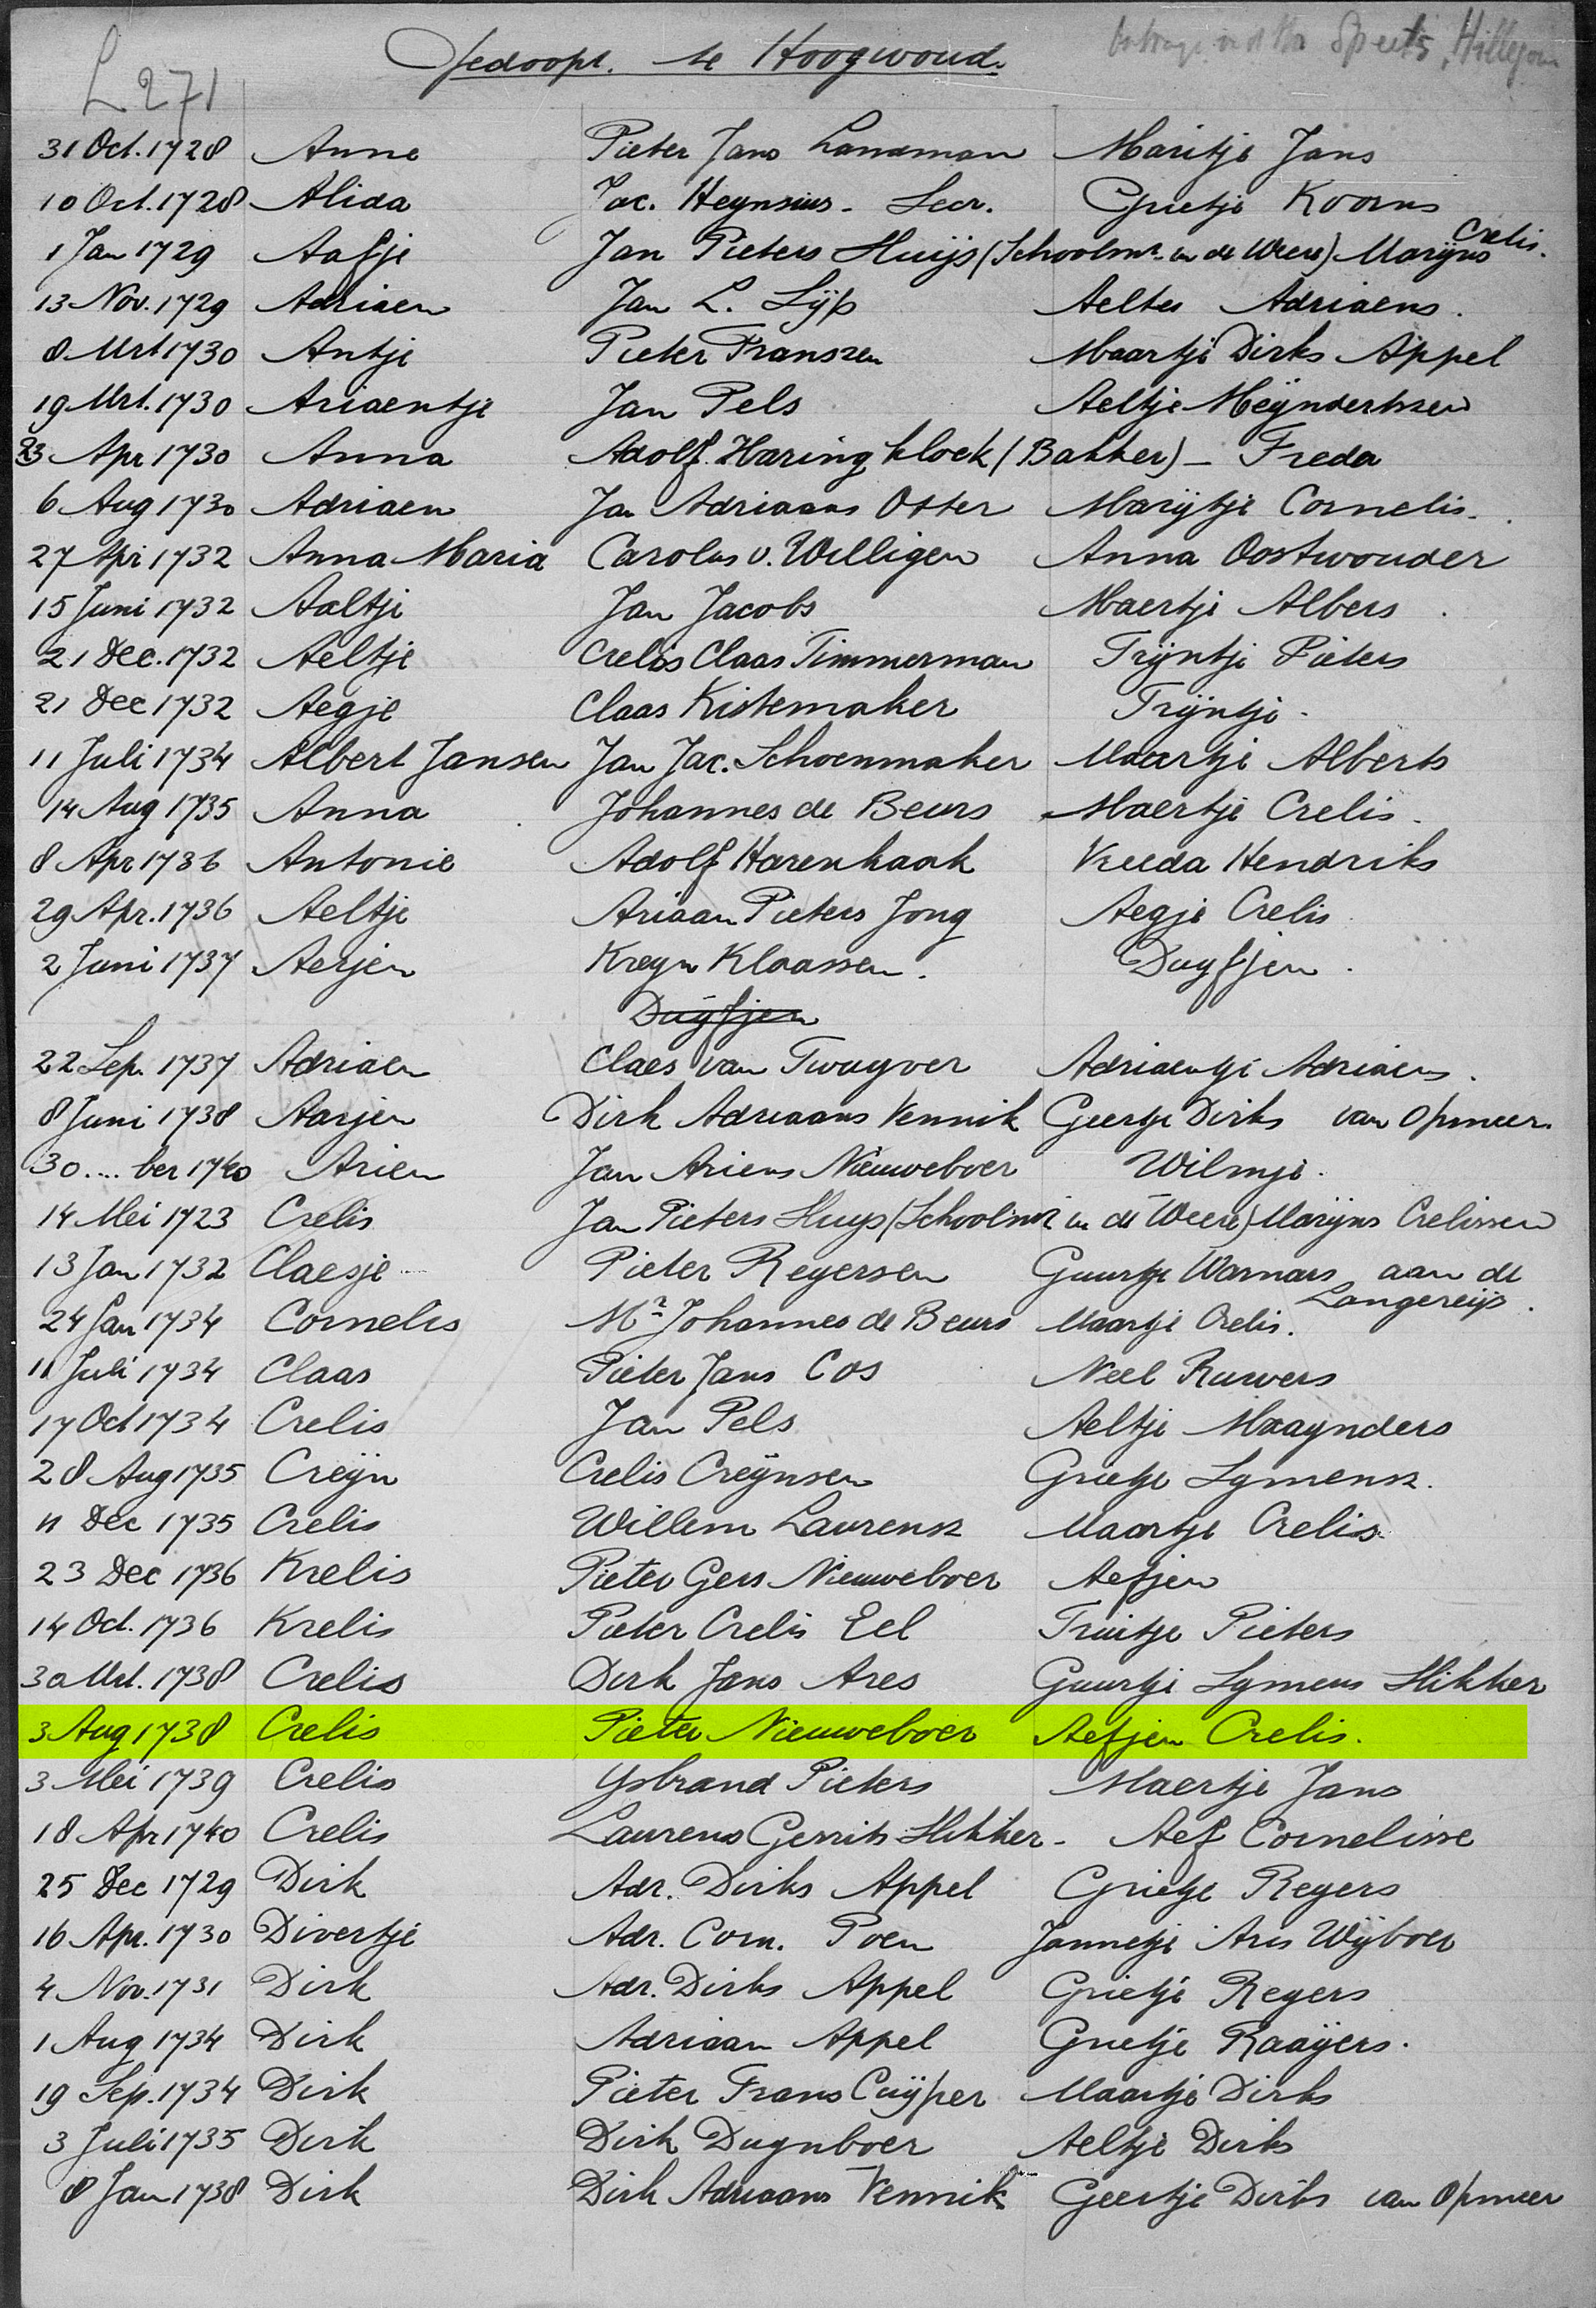 Gedoopt. te Hoogwoud.
Speets, Hillegom
L 271
31 Oct. 1728 Anne Pieter Jans Landman Maritje Jans
10 Oct. 1728 Alida Jac. Heynsius - Secr. Grietje Koorns
1 Jan 1729 Aafje Jan Pieters Huijs (Schoolmr. in de Weere) Marijns Crelis.
13 Nov. 1729 Adriaen Jan L. Lijs Aeltes Adriaens.
8 Mrt 1730 Antje Pieter Franszen Maartje Dirks Appel
19 Mrt. 1730 Ariaentje Jan Pels Aeltje Meÿndertszen
23 Apr 1730 Anna Adolf Haring klock (Bakker) - Freda
6 Aug 1730 Adriaen Jan Adriaans Otter Marijtje Cornelis.
27 Apr 1732 Anna Maria Carolus v. Willigen Anna Oostwouder
15 Juni 1732 Aaltje Jan Jacobs Maertje Albers
21 Dec. 1732 Aeltje Crelis Claas Timmerman Trijntje Pieters
21 Dec 1732 Aegje Claas Kistemaker Trijntje -
11 Juli 1734 Albert Jansen Jan Jac. Schoenmaker Maertje Alberts
14 Aug 1735 Anna Johannes de Beurs Maertje Crelis.
8 Apr 1736 Antonie Adolf Harenkaak Vreeda Hendriks
29 Apr. 1736 Aeltje Ariaan Pieters Jong Aegje Crelis
2 Juni 1737 Aerjen Kreyn Klaassen. Duyfjen.
Duÿfjen
22 Sep. 1737 Adriaen Claes van Twuyver Adriaentje Adriaens.
8 Juni 1738 Aarjen Dirk Adriaans Vennik Geertje Dirks van Opmeer.
30 .... ber 1740 Arien Jan Ariens Nieuweboer Wilmje.
14 Mei 1723 Crelis Jan Pieters Huys (Schoolmr in de Weere) Marijns Crelissen
13 Jan 1732 Claesje Pieter Reyersen Guurtje Warnars aan de Langereijs.
24 Jan 1734 Cornelis Mr. Johannes de Beurs Maartje Crelis.
11 Juli 1734 Claas Pieter Jans Cos Neel Ruwers
17 Oct 1734 Crelis Jan Pels Aeltje Maaynders
28 Aug 1735 Creijn Crelis Creÿnsen Grietje Symensz.
11 Dec 1735 Crelis Willem Laurensz Maartje Crelis
23 Dec 1736 Krelis Pieter Gers Nieuweboer Aefjen
14 Oct. 1736 Krelis Pieter Crelis Eel Truitje Pieters
30 Mrt. 1738 Crelis Dirk Jans Ares Guurtje Symens Slikker
3 Aug 1738 Crelis Pieter Nieuweboer Aefjen Crelis.
3 Mei 1739 Crelis Ysbrand Pieters Maertje Jans
18 Apr 1740 Crelis Laurens Gerrits Slikker - Aef Cornelisse
25 Dec 1729 Dirk Adr. Dirks Appel Grietje Reyers
16 Apr. 1730 Divertje Adr. Corn. Poen Jannetje Aris Wijboer
4 Nov. 1731 Dirk Adr. Dirks Appel Grietje Reyers
1 Aug 1734 Dirk Adriaan Appel Grietje Raaÿers.
19 Sep. 1734 Dirk Pieter Frans Cuÿper Maartje Dirks
3 Juli 1735 Dirk Dirk Duynboer Aeltje Dirks
8 Jan 1738 Dirk Dirk Adriaans Vennik Geertje Dirks van Opmeer